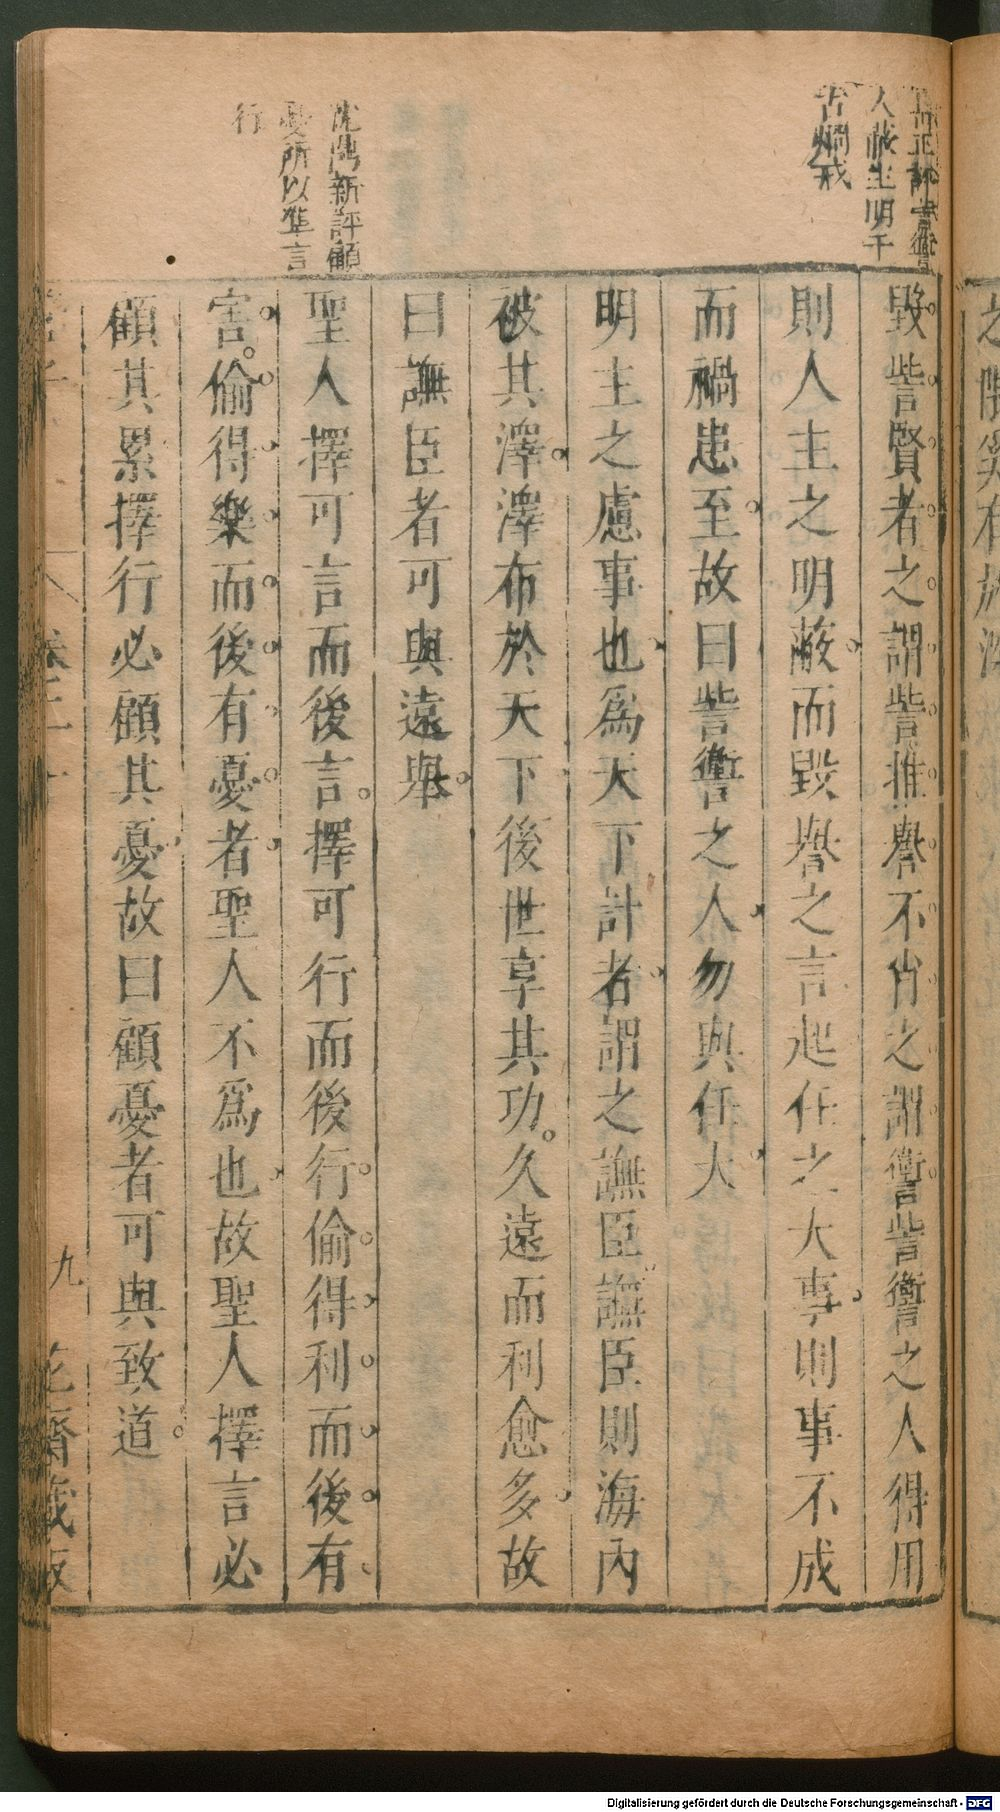 人蔽主明千
古炯戒
毀訾賢者之謂訾推譽不肖之謂讆訾讆之人得用
則人主之明蔽而毀譽之言起任之大事則事不成
而禍患至故曰訾讆之人勿與任大
明主之慮事也爲天下計者謂之譕臣譕臣則海內
被其澤澤布於天下後世享其功久遠而利愈多故
曰譕臣者可與遠舉
沈鼎新評顧
憂所以準言
行
聖人擇可言而後言擇可行而後行偷得利而後有
害偷得樂而後有憂者聖人不爲也故聖人擇言必
顧其累擇行必顧其憂故曰顧憂者可與致道
九
齋藏板
Digitalisierung gefördert durch die Deutsche Forschungsgemeinschaft - DFG